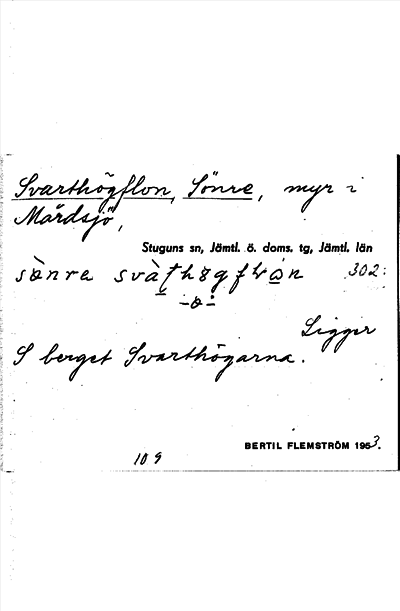 Svarthögflon, Sönre, myr i
Mårdsjö,
Stuguns sn, Jämtl. ö. doms. tg, Jämtl. län
302:
Ligger
S berget Svarthögarna.
BERTIL FLEMSTRÖM 1953.
109